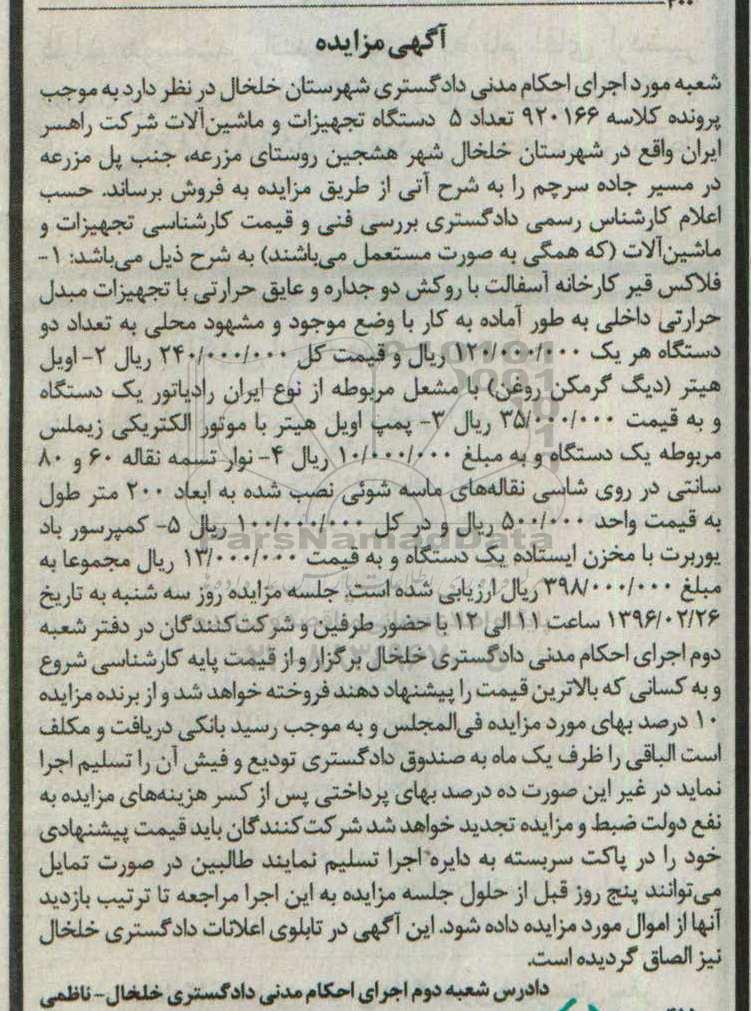 ۴۰۰
آگهی مزایده
شعبه مورد اجرای احکام مدنی دادگستری شهرستان خلخال در نظر دارد به موجب
پرونده کلاسه ۹۲۰۱۶۶ تعداد ۵ دستگاه تجهیزات و ماشین‌آلات شرکت راهسر
ایران واقع در شهرستان خلخال شهر هشجین روستای مزرعه، جنب پل مزرعه
در مسیر جاده سرچم را به شرح آتی از طریق مزایده به فروش برساند. حسب
اعلام کارشناس رسمی دادگستری بررسی فنی و قیمت کارشناسی تجهیزات و
ماشین‌آلات (که همگی به صورت مستعمل می‌باشند) به شرح ذیل می‌باشد: ۱-
فلاکس قیر کارخانه آسفالت با روکش دو جداره و عایق حرارتی با تجهیزات مبدل
حرارتی داخلی به طور آماده به کار با وضع موجود و مشهود محلی به تعداد دو
دستگاه هر یک ۱۲۰/۰۰۰/۰۰۰ ریال و قیمت کل ۲۴۰/۰۰۰/۰۰۰ ریال ۲- اویل
هیتر (دیگ گرمکن روغن) با مشعل مربوطه از نوع ایران رادیاتور یک دستگاه
و به قیمت ۳۵/۰۰۰/۰۰۰ ریال ۳- پمپ اویل هیتر با موتور الکتریکی زیملس
مربوطه یک دستگاه و به مبلغ ۱۰/۰۰۰/۰۰۰ ریال ۴- نوار تسمه نقاله ۶۰ و ۸۰
سانتی در روی شاسی نقاله‌های ماسه شوئی نصب شده به ابعاد ۲۰۰ متر طول
به قیمت واحد ۵۰۰/۰۰۰ ریال و در کل ۱۰۰/۰۰۰/۰۰۰ ریال ۵- کمپرسور باد
یوربرت با مخزن ایستاده یک دستگاه و به قیمت ۱۳/۰۰۰/۰۰۰ ریال مجموعا به
مبلغ ۳۹۸/۰۰۰/۰۰۰ ریال ارزیابی شده است. جلسه مزایده روز سه شنبه به تاریخ
۱۳۹۶/۰۲/۲۶ ساعت ۱۱ الی ۱۲ با حضور طرفین و شرکت‌کنندگان در دفتر شعبه
دوم اجرای احکام مدنی دادگستری خلخال برگزار و از قیمت پایه کارشناسی شروع
و به کسانی که بالاترین قیمت را پیشنهاد دهند فروخته خواهد شد و از برنده مزایده
۱۰ درصد بهای مورد مزایده فی‌المجلس و به موجب رسید بانکی دریافت و مکلف
است الباقی را ظرف یک ماه به صندوق دادگستری تودیع و فیش آن را تسلیم اجرا
نماید در غیر این صورت ده درصد بهای پرداختی پس از کسر هزینه‌های مزایده به
نفع دولت ضبط و مزایده تجدید خواهد شد شرکت‌کنندگان باید قیمت پیشنهادی
خود را در پاکت سربسته به دایره اجرا تسلیم نمایند طالبین در صورت تمایل
می‌توانند پنج روز قبل از حلول جلسه مزایده به این اجرا مراجعه تا ترتیب بازدید
آنها از اموال مورد مزایده داده شود. این آگهی در تابلوی اعلانات دادگستری خلخال
نیز الصاق گردیده است.
دادرس شعبه دوم اجرای احکام مدنی دادگستری خلخال- ناظمی
ParsNamadData